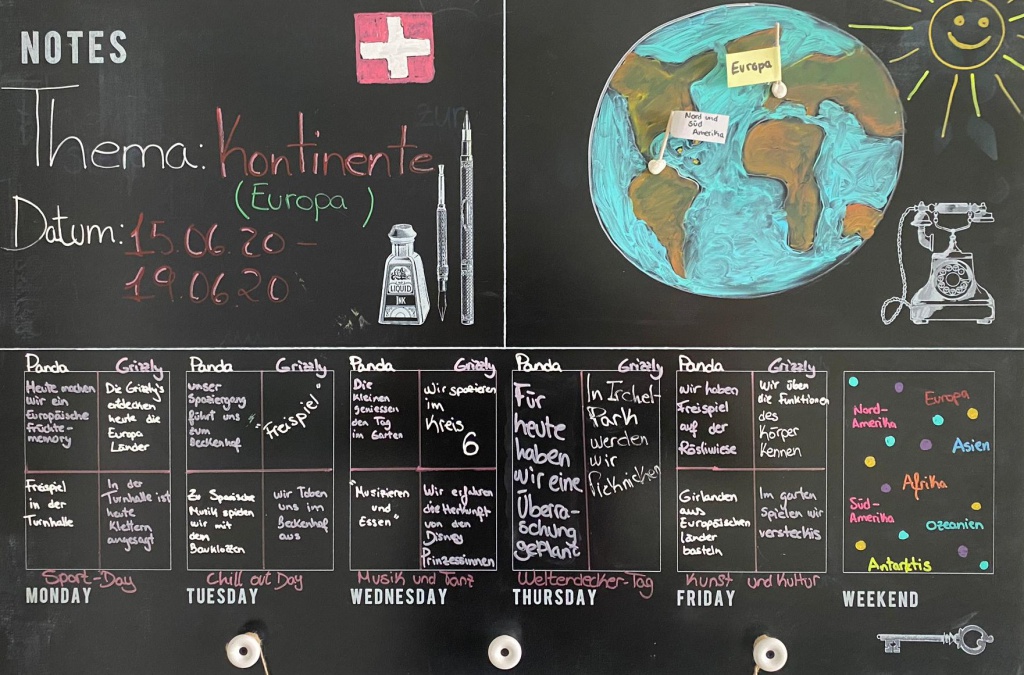 NOTES
Thema: Kontinente
(Europa)
Datum: 15.06.20 –
19.06.20
LIQUID
INK
zur
Europa
Nord und
Süd
Amerika
Panda
Grizzly
Heute machen
wir ein
Europäische
Früchte-
memory
Die Grizzly's
entdecken
heute die
Europa
Länder
Freispiel
in der
Turnhalle
In der
Turnhalle ist
heute
Klettern
angesagt
Sport-Day
MONDAY
Panda
Grizzly
unser
Spaziergang
führt uns
zum
Beckenhof
"Freispiel"
Zu Spanische
Musik spielen
wir mit
dem
Bauklötzen
wir Toben
uns im
Beckenhof
aus
Chill out Day
TUESDAY
Panda
Grizzly
Die
Kleinen
geniessen
den Tag
im Garten
Wir spazieren
im
Kreis
6
"Musizieren
und
Essen"
Wir erfahren
die Herkunft
von den
Disney
Prinzessinnen
Musik und Tanz
WEDNESDAY
Panda
Grizzly
Für
heute
haben
wir eine
Überra-
schung
geplant
In Irchel-
Park
werden
wir
Picknicken
Weltendecker-Tag
THURSDAY
Panda
Grizzly
wir haben
Freispiel
auf der
Röslwiese
Wir üben
die Funktionen
des
Körper
kennen
Girlanden
aus
Europäischen
länder
basteln
Im garten
Spielen wir
versteckis
Kunst und Kultur
FRIDAY
Europa
Nord-
Amerika
Asien
Afrika
Süd-
Amerika
Ozeanien
Antarktis
WEEKEND